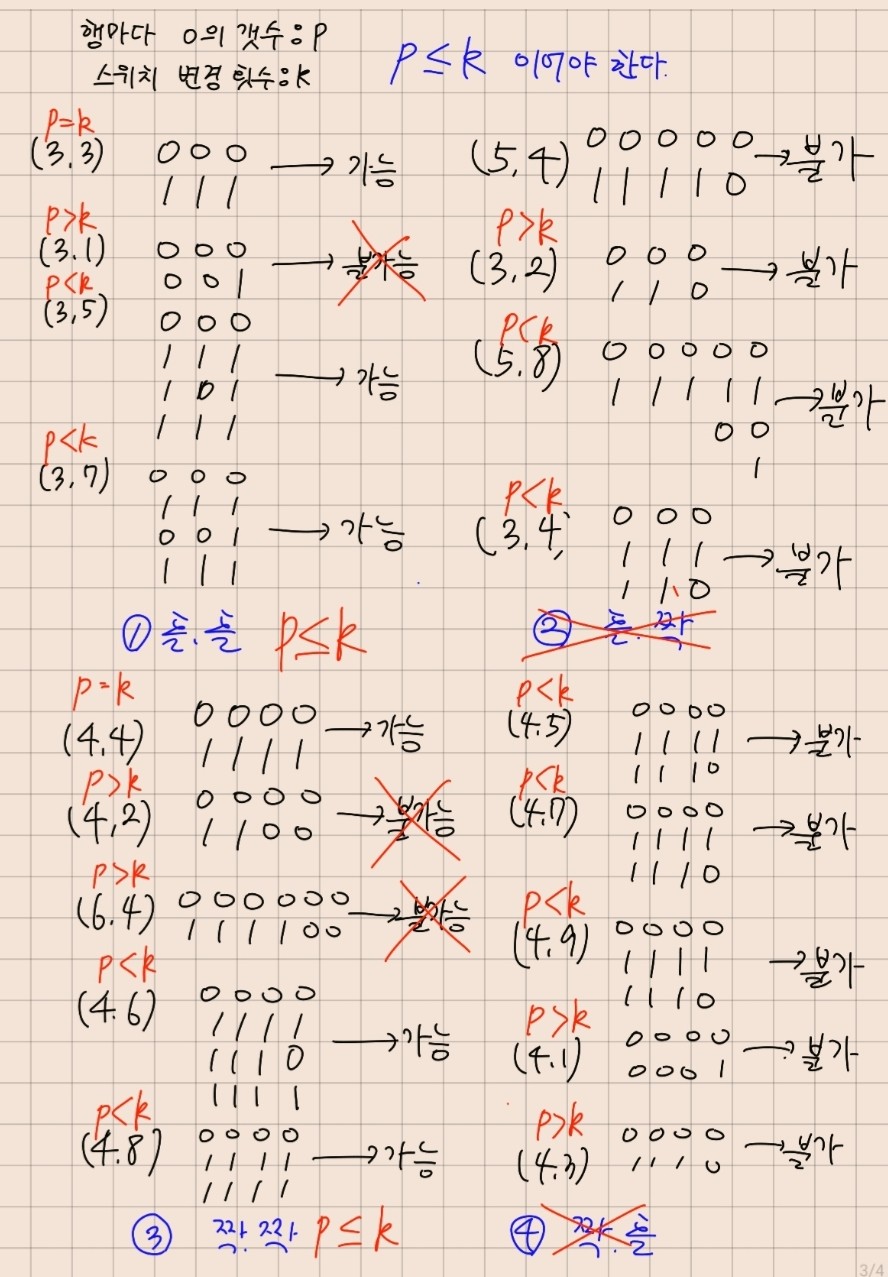 행마다 0의 갯수 : p
스위치 변경 횟수 : k
p ≤ k 이어야 한다.
p=k
(3,3) 0 0 0 → 가능
1 1 1
p>k
(3.1) 0 0 0 → 불가능
0 0 1
p<k
(3,5) 0 0 0
1 1 1 → 가능
1 0 1
1 1 1
p<k
(3,7) 0 0 0
1 1 1
0 0 1 → 가능
1 1 1
① 홀.홀 p≤k
(5,4) 0 0 0 0 0 → 불가
1 1 1 1 0
p>k
(3,2) 0 0 0 → 불가
1 1 0
p<k
(5,8) 0 0 0 0 0
1 1 1 1 1 → 불가
0 0
1
p<k
(3,4) 0 0 0
1 1 1 → 불가
1 1 0
② 홀.짝
p=k
(4,4) 0 0 0 0 → 가능
1 1 1 1
p>k
(4,2) 0 0 0 0 → 불가능
1 1 0 0
p>k
(6.4) 0 0 0 0 0 0 → 불가능
1 1 1 1 0 0
p<k
(4.6) 0 0 0 0
1 1 1 1 → 가능
1 1 1 0
1 1 1 1
p<k
(4.8) 0 0 0 0 → 가능
1 1 1 1
1 1 1 1
③ 짝.짝 p≤k
p<k
(4.5) 0 0 0 0
1 1 1 1 → 불가
1 1 1 0
p<k
(4.7) 0 0 0 0
1 1 1 1 → 불가
1 1 1 0
p<k
(4.9) 0 0 0 0
1 1 1 1 → 불가
1 1 1 0
p>k
(4.1) 0 0 0 0 → 불가
0 0 0 1
p>k
(4.3) 0 0 0 0 → 불가
1 1 1 0
④ 짝.홀
3/4